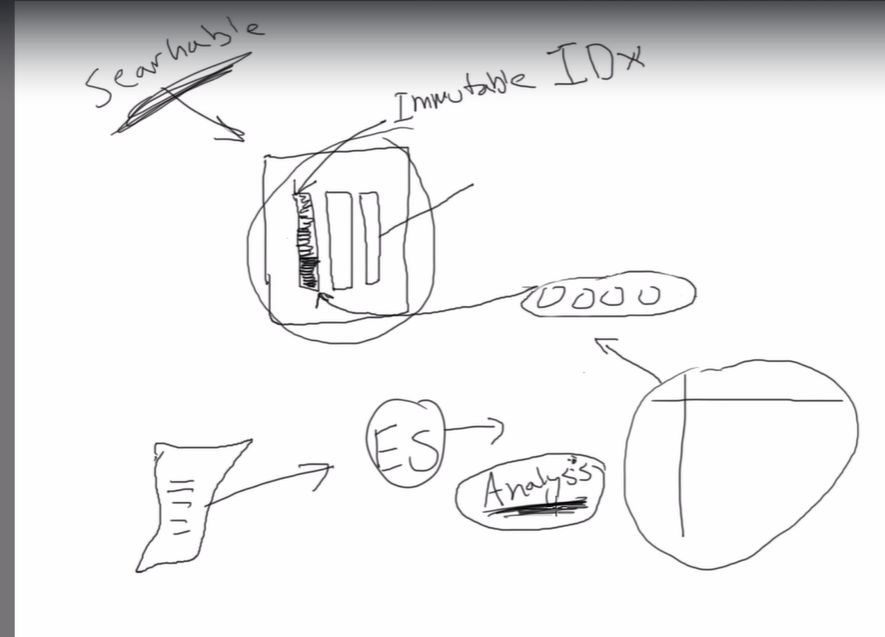 Searhable
Immutable IDx
0000
ES
Analysis